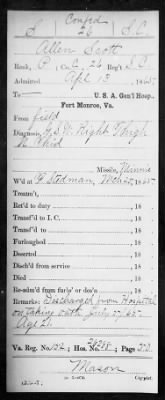 Confed
S 26 S.C.
Allen Scott
Rank, P; Co. C, 26 Reg't S.C.
Admitted Apl 13, 1865.
To U. S. A. Gen'l Hosp.
Fort Monroe, Va.
From field
Diagnosis, G.S.W. Right Thigh
Missile, Minnie
W'd at Ft Stedman, Mch 25, 1865
Treatment,
Ret'd to duty 18
Transf'd to I. C. 18
Transf'd to 18
Furloughed 18
Deserted 18
Disch'd from service 18
Died 18
Re-adm'd from furlo' or des'n 18
Remarks: Discharged from Hospital
on taking oath July 27, 65.
Age 21.
Va. Reg. No.
Mason
Copyist.